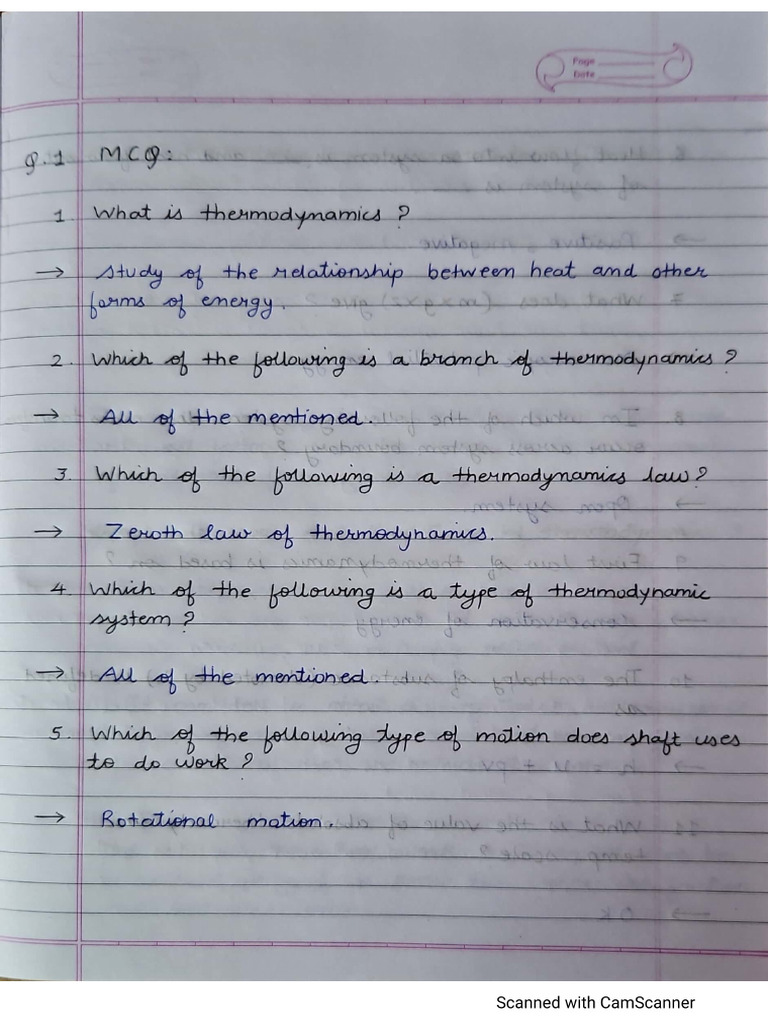 Page
Date
Q.1 MCQ:
1. What is thermodynamics ?
→ Study of the relationship between heat and other
forms of energy.
2. Which of the following is a branch of thermodynamics ?
→ All of the mentioned.
3. Which of the following is a thermodynamics law?
→ Zeroth law of thermodynamics.
4. Which of the following is a type of thermodynamic
system ?
→ All of the mentioned.
5. Which of the following type of motion does shaft uses
to do work ?
→ Rotational motion.
Scanned with CamScanner